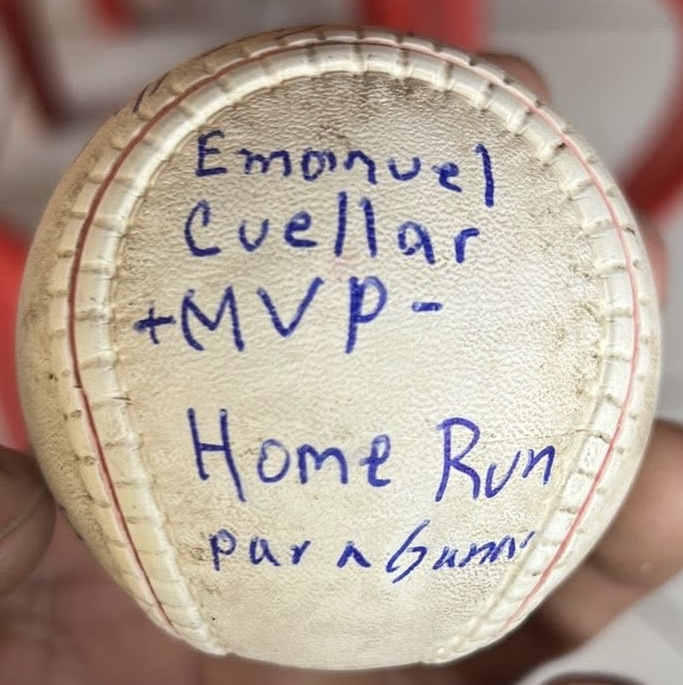 Emanuel
Cuellar
+MVP-
Home Run
para